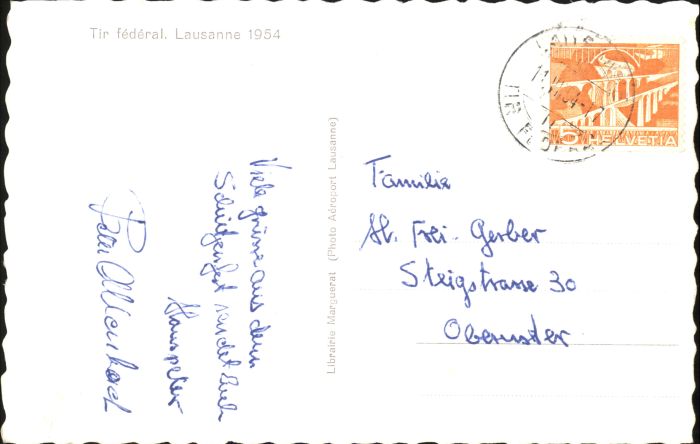 Tir fédéral. Lausanne 1954
5 HELVETIA
Librairie Marguerat (Photo Aéroport Lausanne)
Viele grüsse aus dem
Schützenfest sendet Euch
Hanspeter
Peter
Familie
Frei-Gerber
Steigstrasse 30
Obernster